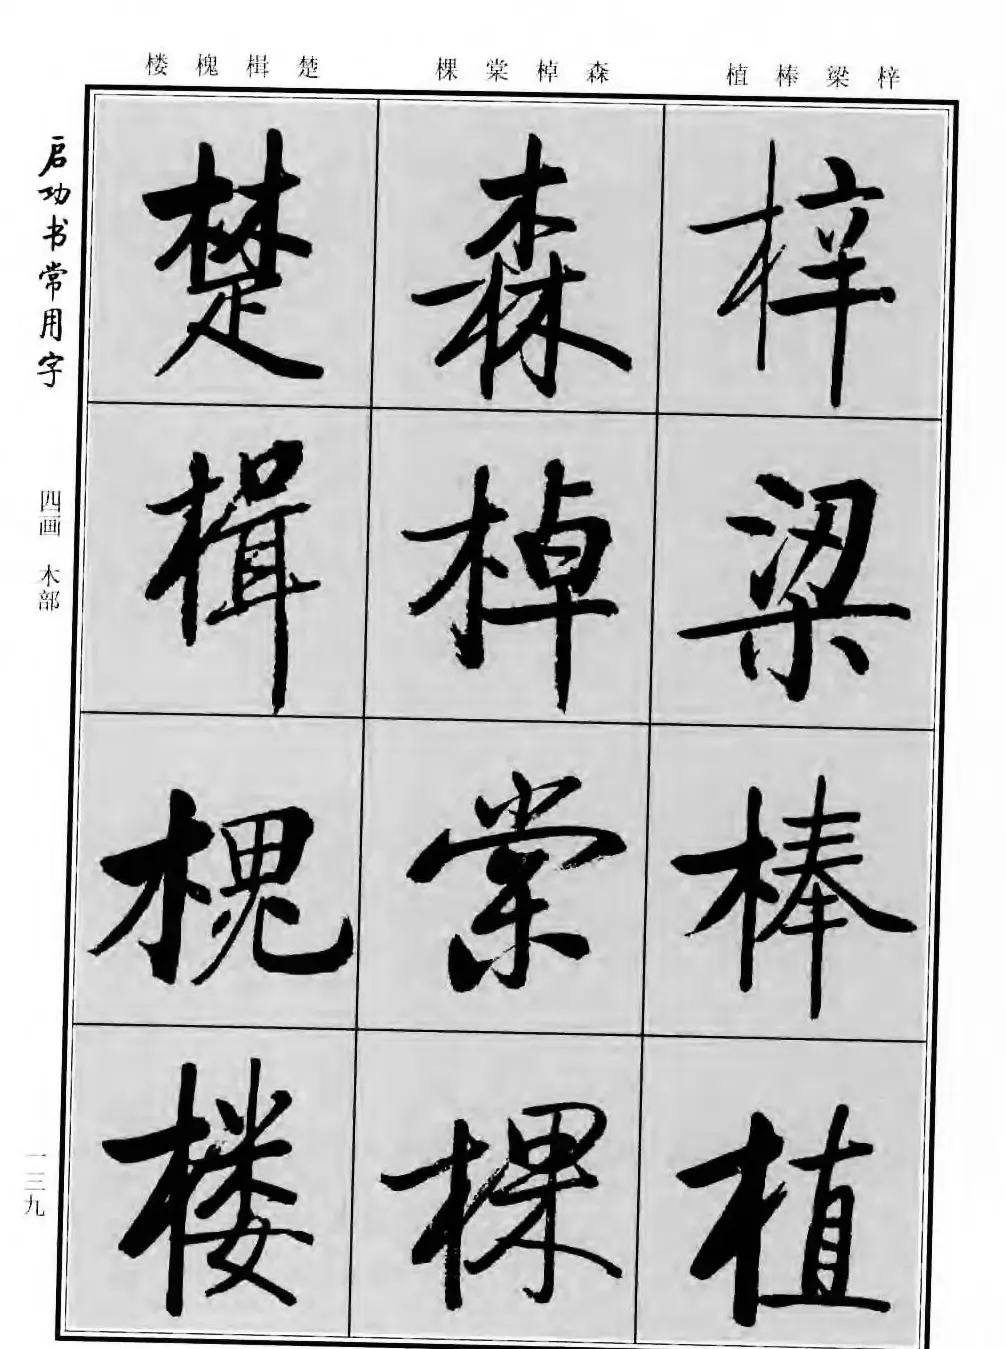 楼 槐 楫 楚
棵 棠 棹 森
植 棒 梁 梓
启功书常用字
四画 木部
一三九
梓
梁
棒
植
森
棹
棠
棵
楚
楫
槐
楼